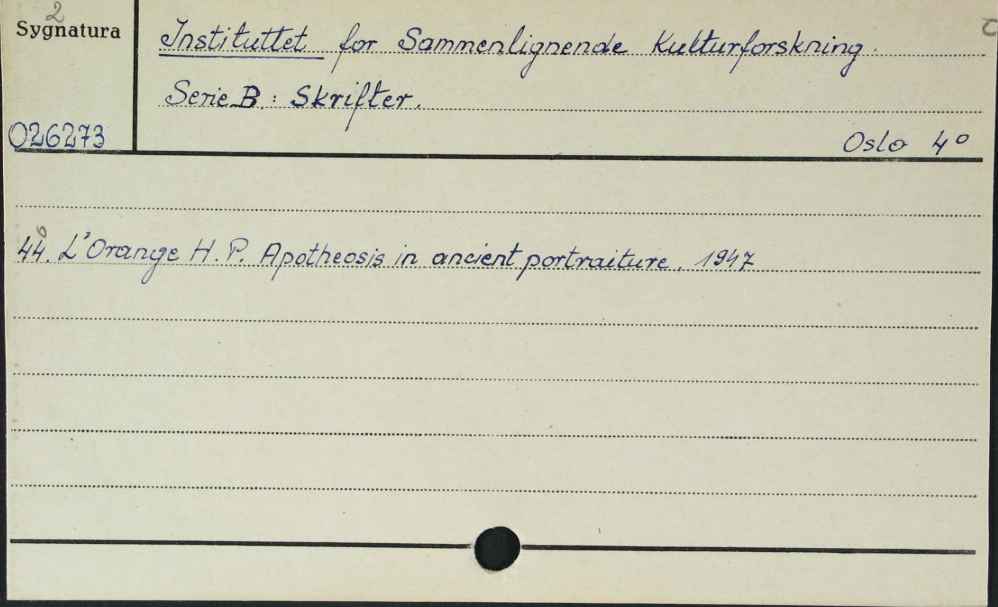 2
Sygnatura
Instituttet for Sammenlignende Kulturforskning.
Serie B : Skrifter.
026273
Oslo 4°
44. L'Orange H. P. Apotheosis in ancient portraiture. 1947